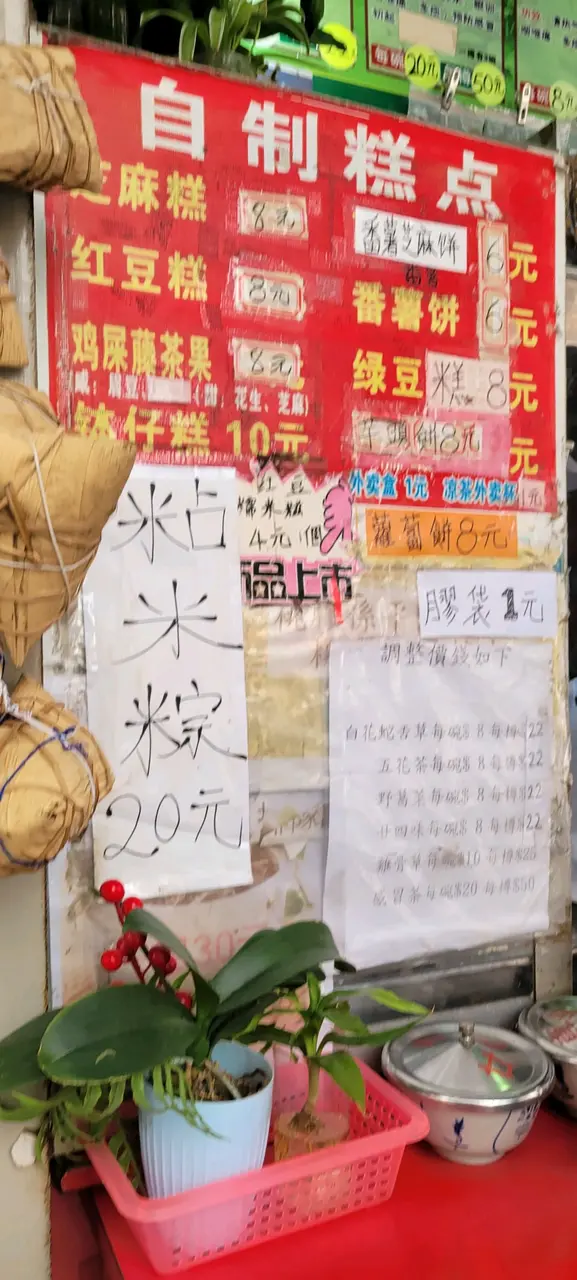 每碗20元
50元
每碗8元
自制糕点
芝麻糕 8元
番薯芝麻饼 6元
红豆糕 8元
番薯饼 6元
鸡屎藤茶果 8元
绿豆糕 8元
花生、芝麻)
钵仔糕 10元
芋頭餅8元
元
外卖盒 1元 凉茶外卖杯1元
红豆
糯米糍
4元/個
蘿蔔餅8元
品上市
膠袋1元
粘米粽
20元
調整價錢如下
白花蛇舌草每碗$8每樽$22
五花茶每碗$8每樽$22
野葛菜每碗$8每樽$22
廿四味每碗$8每樽$22
雞骨草每碗$10每樽$25
感冒茶每碗$20每樽$50